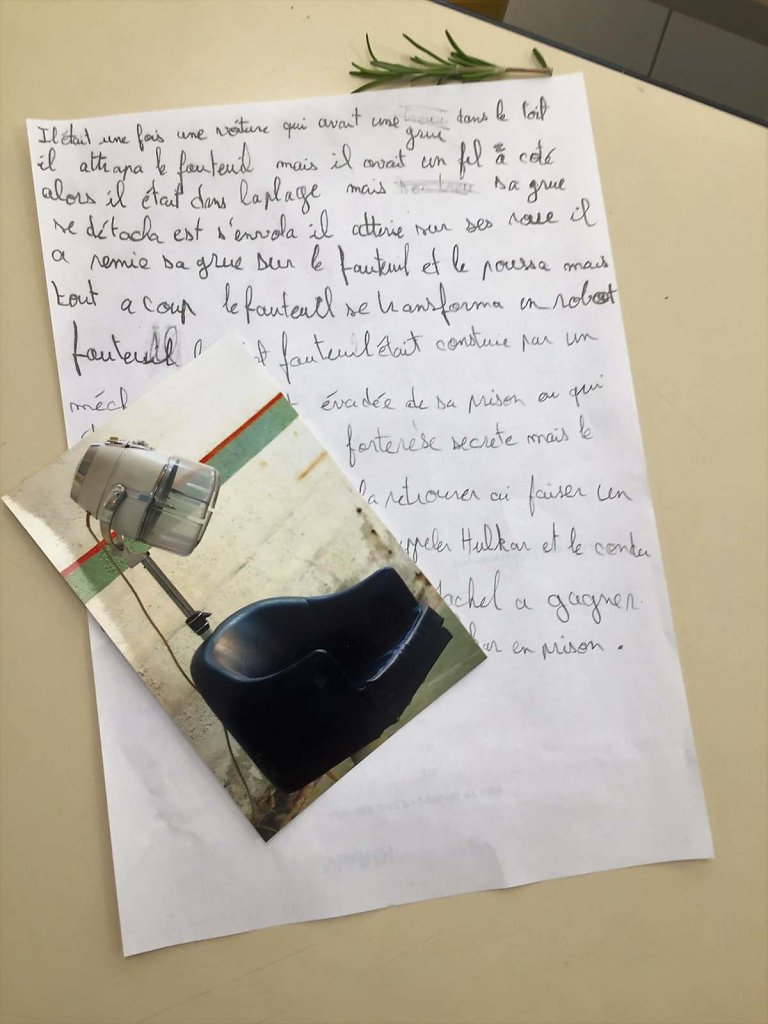 Il était une fois une voiture qui avait une grue dans le toit
il attrapa le fauteuil mais il avait un fil à coté
alors il était dans la plage mais sa grue
se détacha est s'envola il atterie sur ses roue il
a remie sa grue sur le fauteuil et le poussa mais
tout a coup le fauteuil se transforma en robot
fauteuil fauteuil était construie par un
méch évadée de sa prison ou qui
forterèse secrete mais le
la retrouver ai faiser un
Hulkar et le contu
a gagner.
en prison.